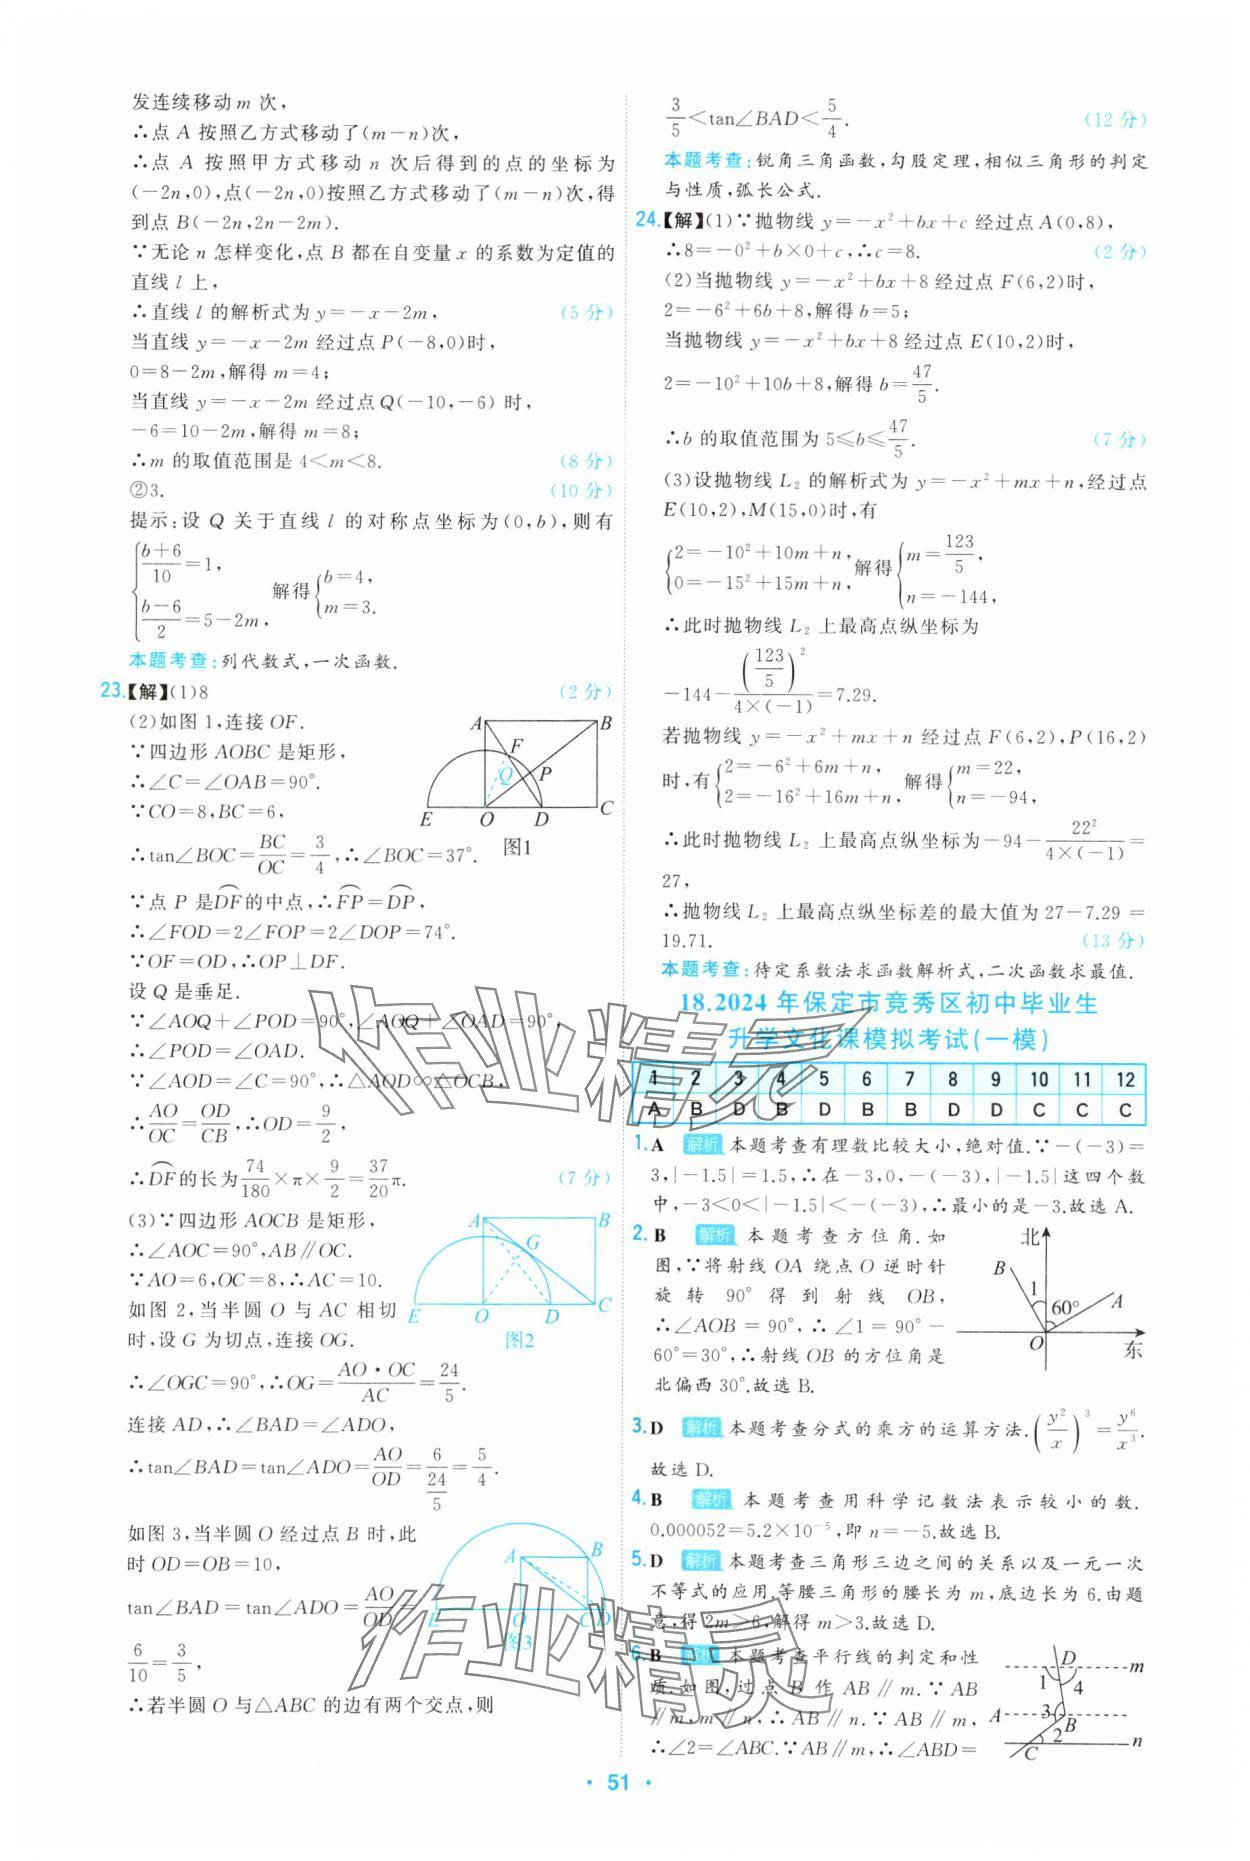 发连续移动m次,
∴点A按照乙方式移动了(m-n)次,
∴点A按照甲方式移动n次后得到的点的坐标为
(-2n,0),点(-2n,0)按照乙方式移动了(m-n)次,得
到点B(-2n,2n-2m).
∵无论n怎样变化,点B都在自变量x的系数为定值的
直线l上,
∴直线l的解析式为y=-x-2m, (5分)
当直线y=-x-2m经过点P(-8,0)时,
0=8-2m,解得m=4;
当直线y=-x-2m经过点Q(-10,-6)时,
-6=10-2m,解得m=8;
∴m的取值范围是4<m<8. (8分)
②3. (10分)
提示:设Q关于直线l的对称点坐标为(0,b),则有
{(b+6)/10=1, (b-6)/2=5-2m, 解得{b=4, m=3.
本题考查:列代数式,一次函数.
23.【解】(1)8 (2分)
(2)如图1,连接OF.
∵四边形AOBC是矩形,
∴∠C=∠OAB=90°.
∵CO=8,BC=6,
∴tan∠BOC=BC/OC=3/4,∴∠BOC=37°.
∵点P是⌒DF的中点,∴⌒FP=⌒DP,
∴∠FOD=2∠FOP=2∠DOP=74°.
∵OF=OD,∴OP⊥DF.
设Q是垂足.
∵∠AOQ+∠POD=90°,∠AOQ+∠OAD=90°,
∴∠POD=∠OAD.
∵∠AOD=∠C=90°,∴△AOD∽△OCB,
∴AO/OC=OD/CB,∴OD=9/2,
∴⌒DF的长为74/180×π×9/2=37/20π. (7分)
A B F Q P E O D C
图1
(3)∵四边形AOCB是矩形,
∴∠AOC=90°,AB∥OC.
∵AO=6,OC=8,∴AC=10.
如图2,当半圆O与AC相切
时,设G为切点,连接OG.
∴∠OGC=90°,∴OG=AO·OC/AC=24/5.
连接AD,∴∠BAD=∠ADO,
∴tan∠BAD=tan∠ADO=AO/OD=6/(24/5)=5/4.
A B G E O D C
图2
如图3,当半圆O经过点B时,此
时OD=OB=10,
tan∠BAD=tan∠ADO=AO/OD=
6/10=3/5,
∴若半圆O与△ABC的边有两个交点,则
A B E O C D
图3
3/5<tan∠BAD<5/4. (12分)
本题考查:锐角三角函数,勾股定理,相似三角形的判定
与性质,弧长公式.
24.【解】(1)∵抛物线y=-x²+bx+c经过点A(0,8),
∴8=-0²+b×0+c,∴c=8. (2分)
(2)当抛物线y=-x²+bx+8经过点F(6,2)时,
2=-6²+6b+8,解得b=5;
当抛物线y=-x²+bx+8经过点E(10,2)时,
2=-10²+10b+8,解得b=47/5.
∴b的取值范围为5≤b≤47/5. (7分)
(3)设抛物线L₂的解析式为y=-x²+mx+n,经过点
E(10,2),M(15,0)时,有
{2=-10²+10m+n, 0=-15²+15m+n, 解得{m=123/5, n=-144,
∴此时抛物线L₂上最高点纵坐标为
-144-(123/5)²/(4×(-1))=7.29.
若抛物线y=-x²+mx+n经过点F(6,2),P(16,2)
时,有{2=-6²+6m+n, 2=-16²+16m+n, 解得{m=22, n=-94,
∴此时抛物线L₂上最高点纵坐标为-94-22²/(4×(-1))=
27,
∴抛物线L₂上最高点纵坐标差的最大值为27-7.29=
19.71. (13分)
本题考查:待定系数法求函数解析式,二次函数求最值.
18.2024年保定市竞秀区初中毕业生
升学文化课模拟考试(一模)
1 2 3 4 5 6 7 8 9 10 11 12
A B D B D B B D D C C C
1.A 解析 本题考查有理数比较大小,绝对值.∵-(-3)=
3,|-1.5|=1.5,∴在-3,0,-(-3),|-1.5|这四个数
中,-3<0<|-1.5|<-(-3),∴最小的是-3.故选A.
2.B 解析 本题考查方位角.如
图,∵将射线OA绕点O逆时针
旋转90°得到射线OB,
∴∠AOB=90°,∴∠1=90°-
60°=30°,∴射线OB的方位角是
北偏西30°.故选B.
北 B 1 60° A O 东
3.D 解析 本题考查分式的乘方的运算方法.(y²/x)³=y⁶/x³.
故选D.
4.B 解析 本题考查用科学记数法表示较小的数.
0.000052=5.2×10⁻⁵,即n=-5.故选B.
5.D 解析 本题考查三角形三边之间的关系以及一元一次
不等式的应用.等腰三角形的腰长为m,底边长为6.由题
意,得2m>6,解得m>3.故选D.
6.B 解析 本题考查平行线的判定和性
质.如图,过点B作AB∥m.∵AB
∥m,m∥n,∴AB∥n.∵AB∥m,
∴∠2=∠ABC.∵AB∥m,∴∠ABD=
D m 1 4 A 3 B 2 C n
· 51 ·
作业精灵
作业精灵